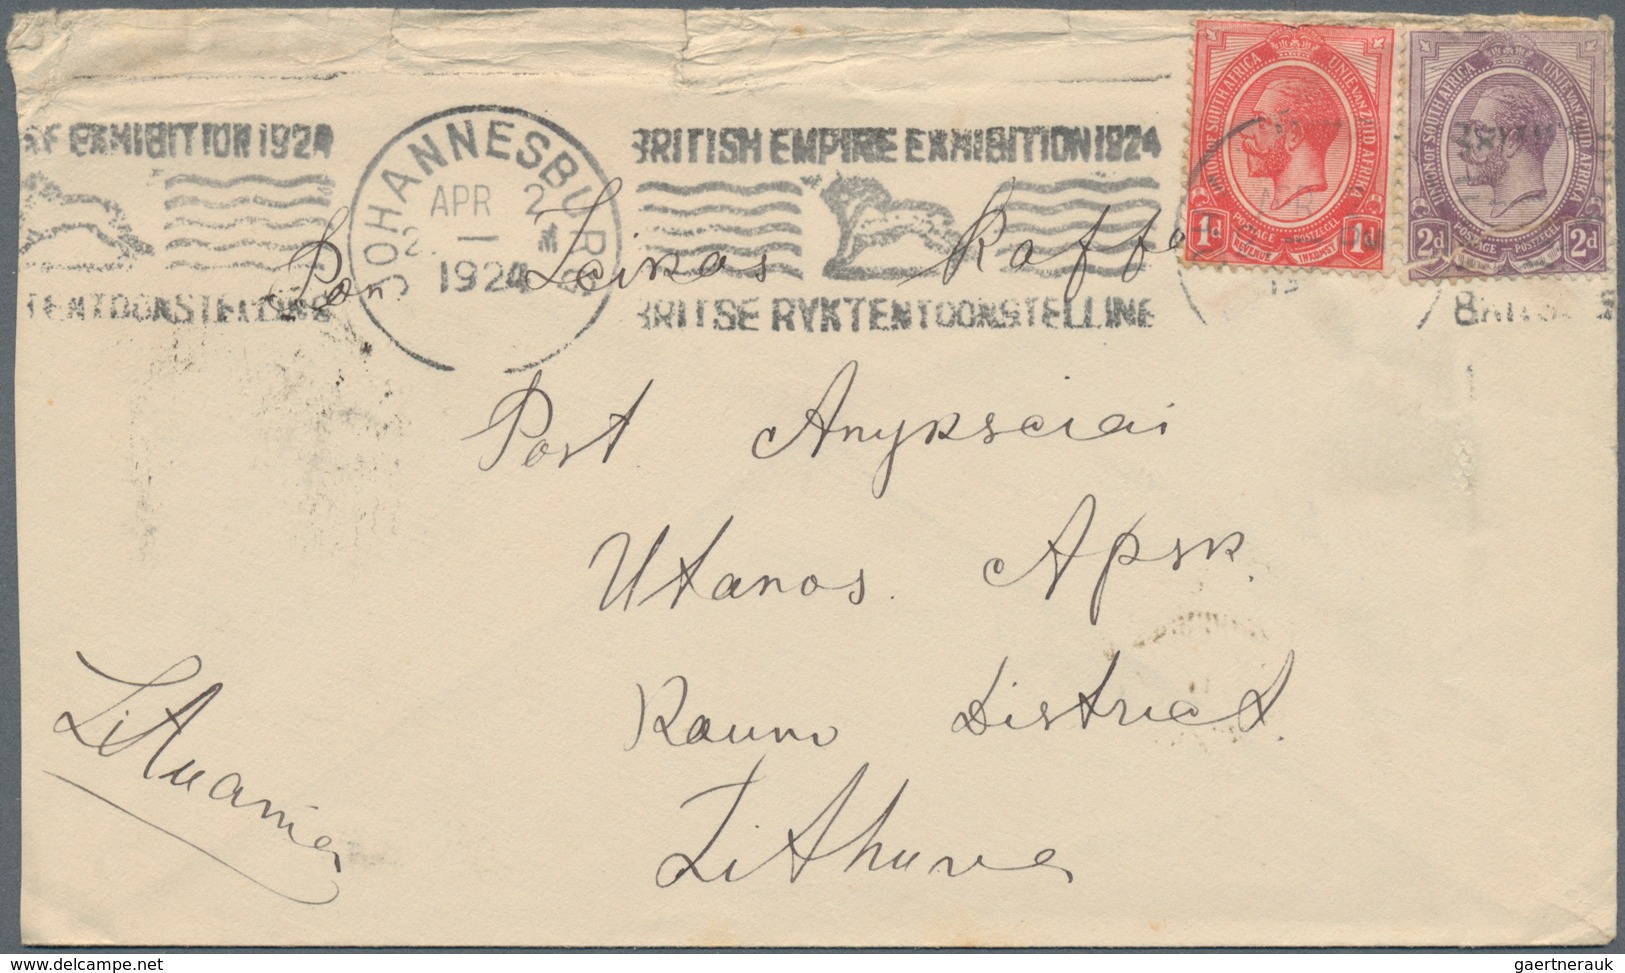 UNION OF SOUTH AFRICA UNIE VAN ZUID AFRIKA
1d POSTAGE POSTZEGEL 1d
REVENUE INKOMST
UNION OF SOUTH AFRICA UNIE VAN ZUID AFRIKA
2d POSTAGE POSTZEGEL 2d
EXHIBITION 1924
TENTOONSTELLING
JOHANNESBURG
APR 2
2 - M
1924
BRITISH EMPIRE EXHIBITION 1924
BRITSE RYKTENTOONSTELLING
Pon. Leikas Raffo
Post Anyksciai
Utanos. Apsk.
Kauno District
Lithuva
Lituania
delcampe.net
gaertnerauk